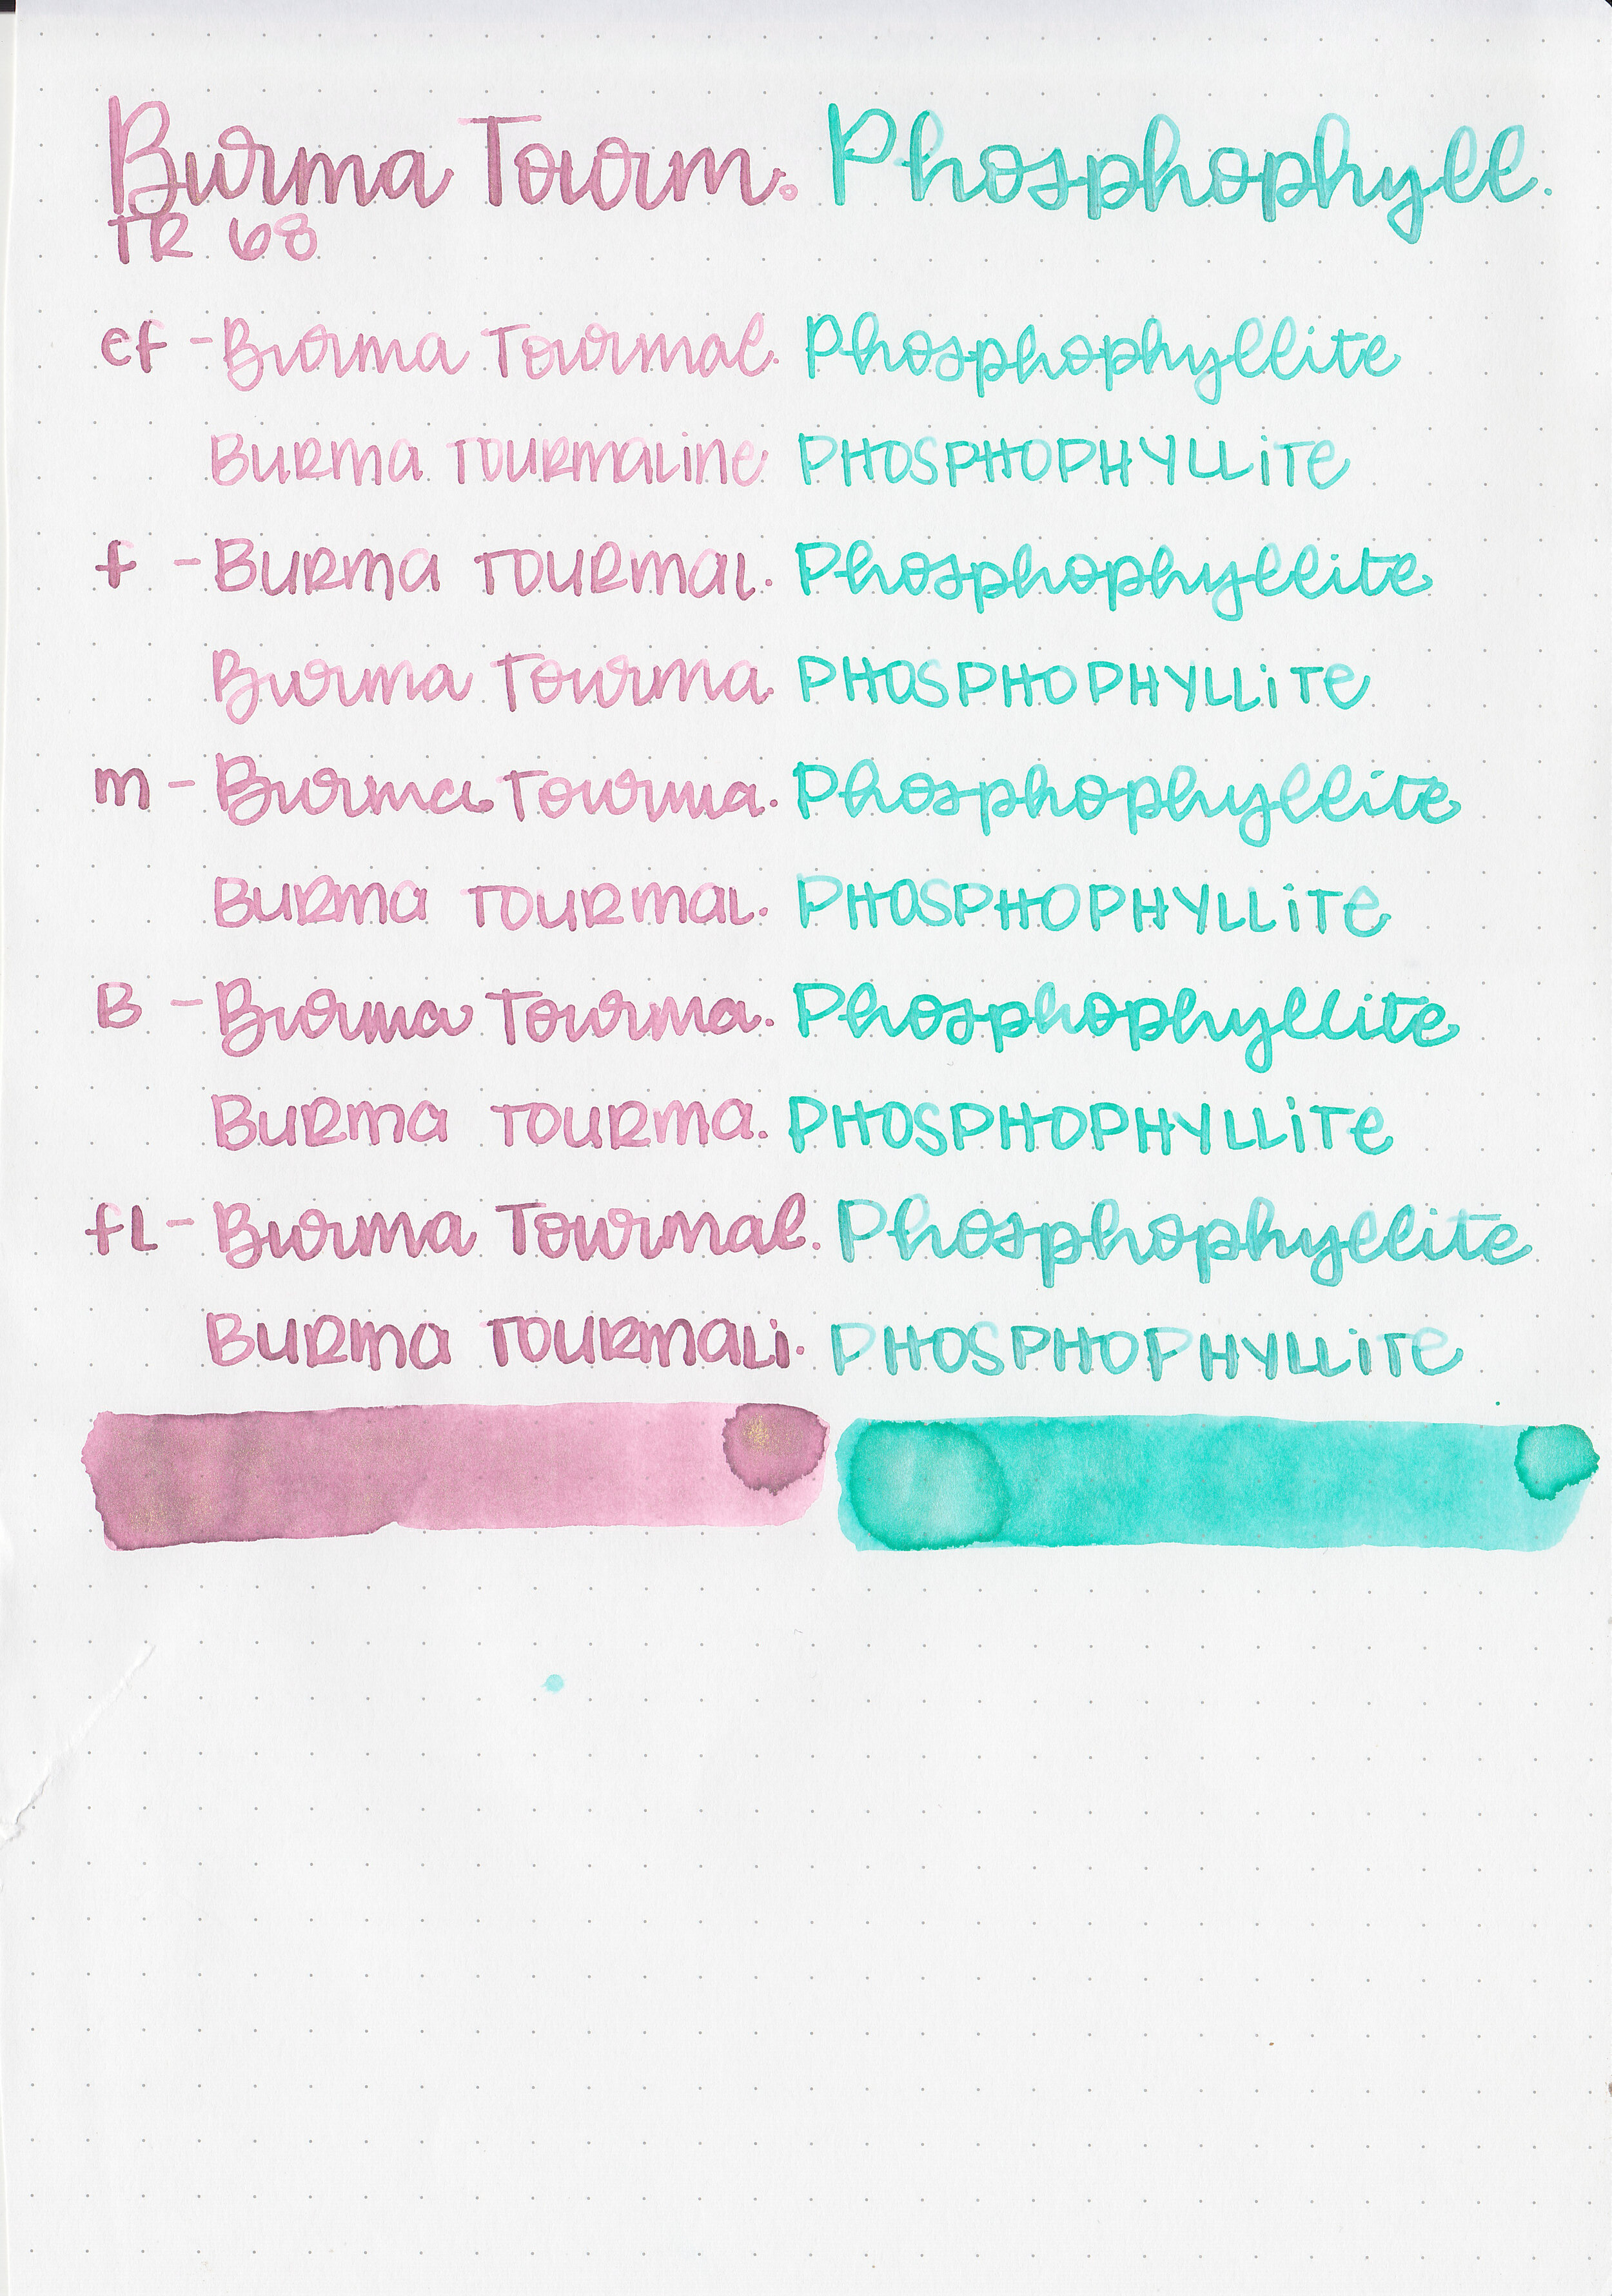 Burma Tourm. Phosphophyll.
TR 68
ef - Burma Tourmal. Phosphophyllite
BURMA TOURMALiNe PHOSPHOPHYLLiTe
f - BURMA TOURMAL. Phosphophyllite
Burma Tourma. PHOSPHOPHYLLiTe
m - Burma Tourma. Phosphophyllite
BURMA TOURMAL. PHOSPHOPHYLLiTe
B - Burma Tourma. Phosphophyllite
BURMA TOURMA. PHOSPHOPHYLLiTe
fL - Burma Tourmal. Phosphophyllite
BURMA TOURMALi. PHOSPHOPHYLLiTe